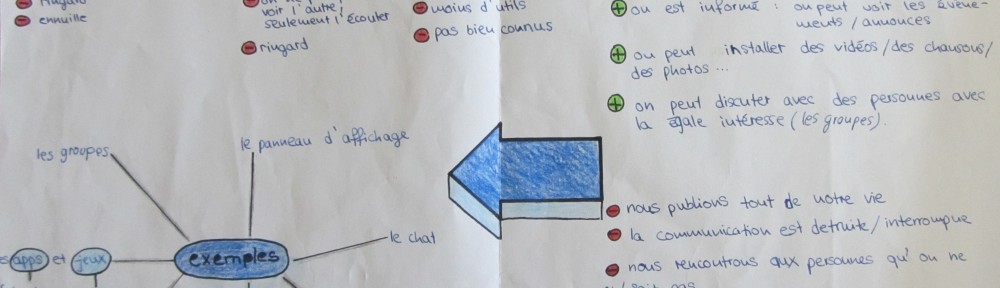 ringard
ennuille
voir l'autre,
seulement l'écouter
ringard
moins d'utils
pas bien connus
on est informé : on peut voir les évene-
ments / annonces
on peut installer des vidéos / des chansons /
des photos ...
on peut discuter avec des personnes avec
la égale intéresse (les groupes).
les groupes
le panneau d'affichage
le chat
apps et jeux
exemples
nous publions tout de notre vie
la communication est detruite / interrompue
nous rencontrons aux personnes qu'on ne